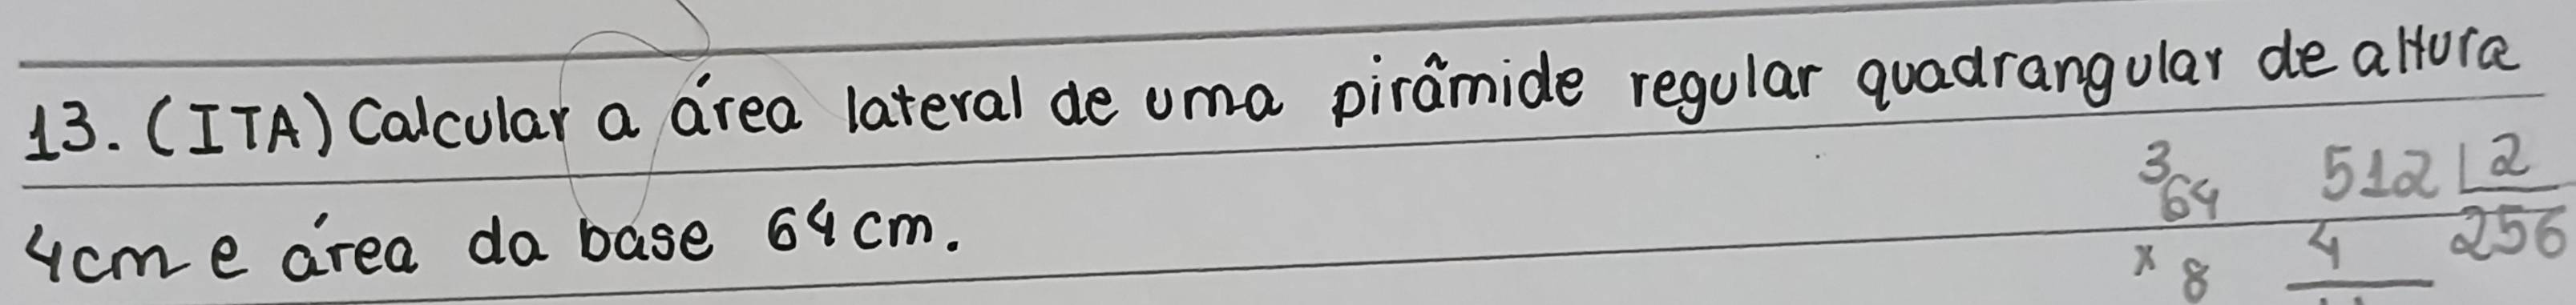 13. (ITA) Calcular a área lateral de uma pirâmide regular quadrangular de altura
4cm e área da base 64cm.
3
64
x 8
512 2
4 256